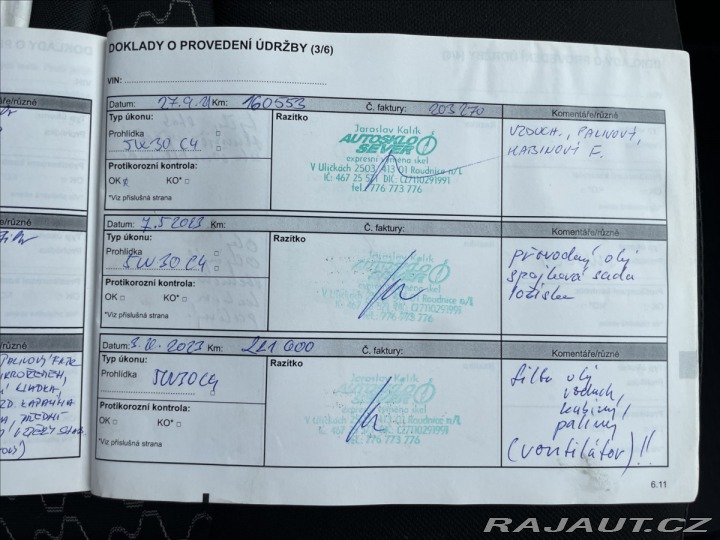 DOKLADY O PROVEDENÍ ÚDRŽBY (3/6)
VIN:
Datum: 27.9.21 Km: 160553 Č. faktury: 203270 Komentáře/různé
Typ úkonu: Razítko
Prohlídka
5W30 C4
Protikorozní kontrola:
OK KO*
*Viz příslušná strana
Jaroslav Kalik
AUTOSKLO
SEVER
expresní výměna skel
V Uličkách 2503, 413 01 Roudnice n/L
IČ: 467 25 DIČ: CZ7110291991
tel.: 776 773 776
VZDUCH., PALIVOVÝ,
KABINOVÝ F.
Datum: 7.5.2023 Km: Č. faktury: Komentáře/různé
Typ úkonu: Razítko
Prohlídka
5W30 C4
Protikorozní kontrola:
OK KO*
*Viz příslušná strana
Jaroslav Kalik
Roudnice n/L
tel.: 776 773 776
převodový olej
spojková sada
ložiska
Datum: Km: Č. faktury: Komentáře/různé
Typ úkonu: Razítko
Prohlídka
5W30 C4
Protikorozní kontrola:
OK KO*
*Viz příslušná strana
Jaroslav Kalik
AUTOSKLO
SEVER
expresní výměna skel
V Uličkách 413 01 Roudnice n/L
IČ: 467 25 DIČ: CZ7110291991
tel.: 776 773 776
filtr olej
vzduch,
kabiny,
palivy
(ventilátor)!!
6.11
áře/různé
PALIVOVÝ
KLADKA,
RAJAUT.CZ